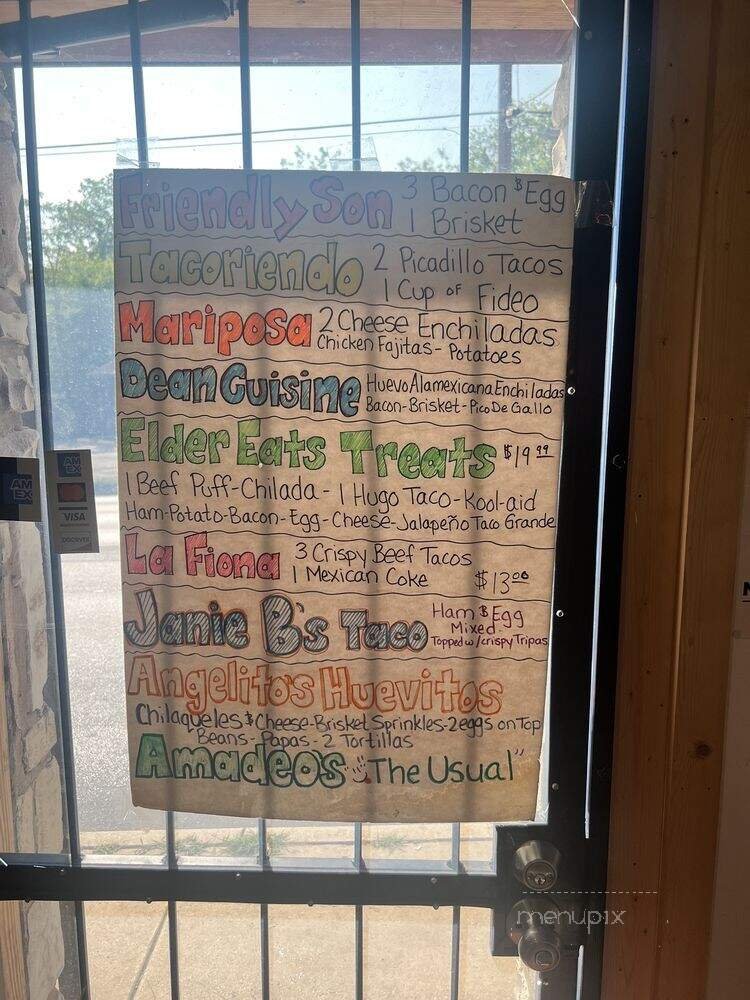 Friendly Son 3 Bacon & Egg
1 Brisket
Tacoriendo 2 Picadillo Tacos
1 Cup of Fideo
Mariposa 2 Cheese Enchiladas
Chicken Fajitas - Potatoes
Dean Cuisine Huevo Alamexicana Enchiladas
Bacon-Brisket-Pico De Gallo
Elder Eats Treats $19.99
1 Beef Puff-Chilada - 1 Hugo Taco-Kool-aid
Ham-Potato-Bacon-Egg-Cheese-Jalapeño Taco Grande
La Fiona 3 Crispy Beef Tacos
1 Mexican Coke $13.00
Janie B's Taco Ham & Egg
Mixed
Topped w/crispy Tripas
Angelito's Huevitos
Chilaqueles & Cheese-Brisket Sprinkles-2 eggs on Top
Beans-Papas-2 Tortillas
Amadeo's "The Usual"
AM EX
AM EX
VISA
menupix